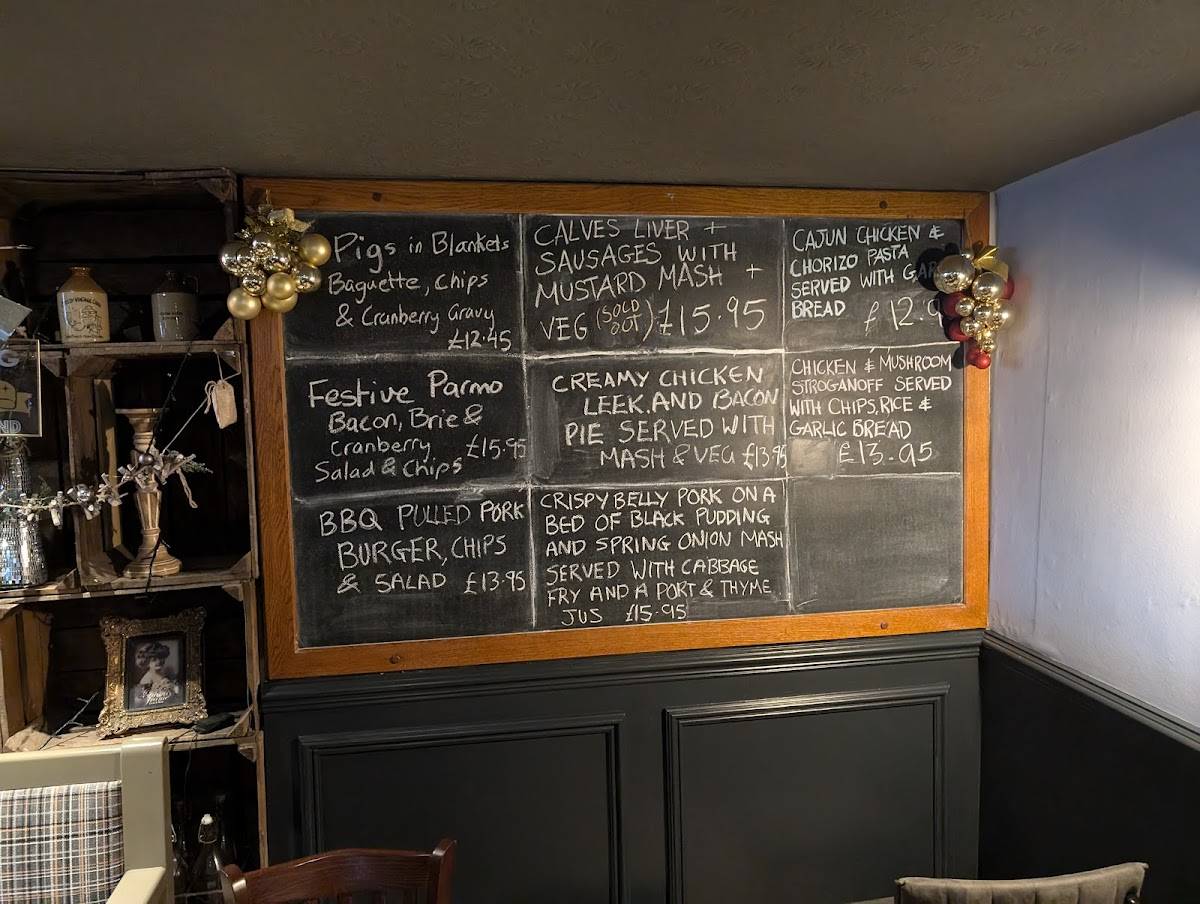 Pigs in Blankets
Baguette, Chips
& Cranberry Gravy
£12.45
CALVES LIVER +
SAUSAGES WITH
MUSTARD MASH +
VEG (SOLD OUT) £15.95
CAJUN CHICKEN &
CHORIZO PASTA
SERVED WITH GAR
BREAD
£12.9
Festive Parmo
Bacon, Brie &
Cranberry £15.95
Salad & Chips
CREAMY CHICKEN
LEEK AND BACON
PIE SERVED WITH
MASH & VEG £13.95
CHICKEN & MUSHROOM
STROGANOFF SERVED
WITH CHIPS, RICE &
GARLIC BREAD
£13.95
BBQ PULLED PORK
BURGER, CHIPS
& SALAD £13.95
CRISPY BELLY PORK ON A
BED OF BLACK PUDDING
AND SPRING ONION MASH
SERVED WITH CABBAGE
FRY AND A PORT & THYME
JUS £15.95